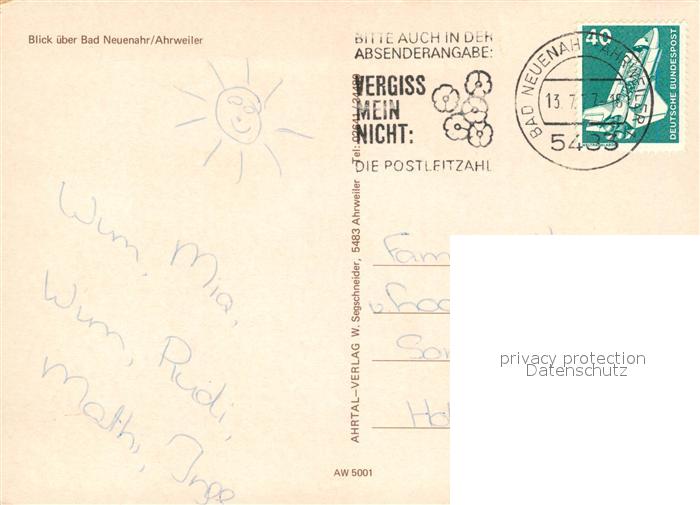 Blick über Bad Neuenahr/Ahrweiler
BITTE AUCH IN DER
ABSENDERANGABE:
VERGISS
MEIN
NICHT:
DIE POSTLEITZAHL
BAD NEUENAHR-AHRWEILER
13.7.77
5483
40
DEUTSCHE BUNDESPOST
AHRTAL—VERLAG W. Segschneider, 5483 Ahrweiler Tel: 02641/34409
Wim, Mia,
Wim, Rudi,
Math, Inge
Fam
privacy protection
Datenschutz
AW 5001